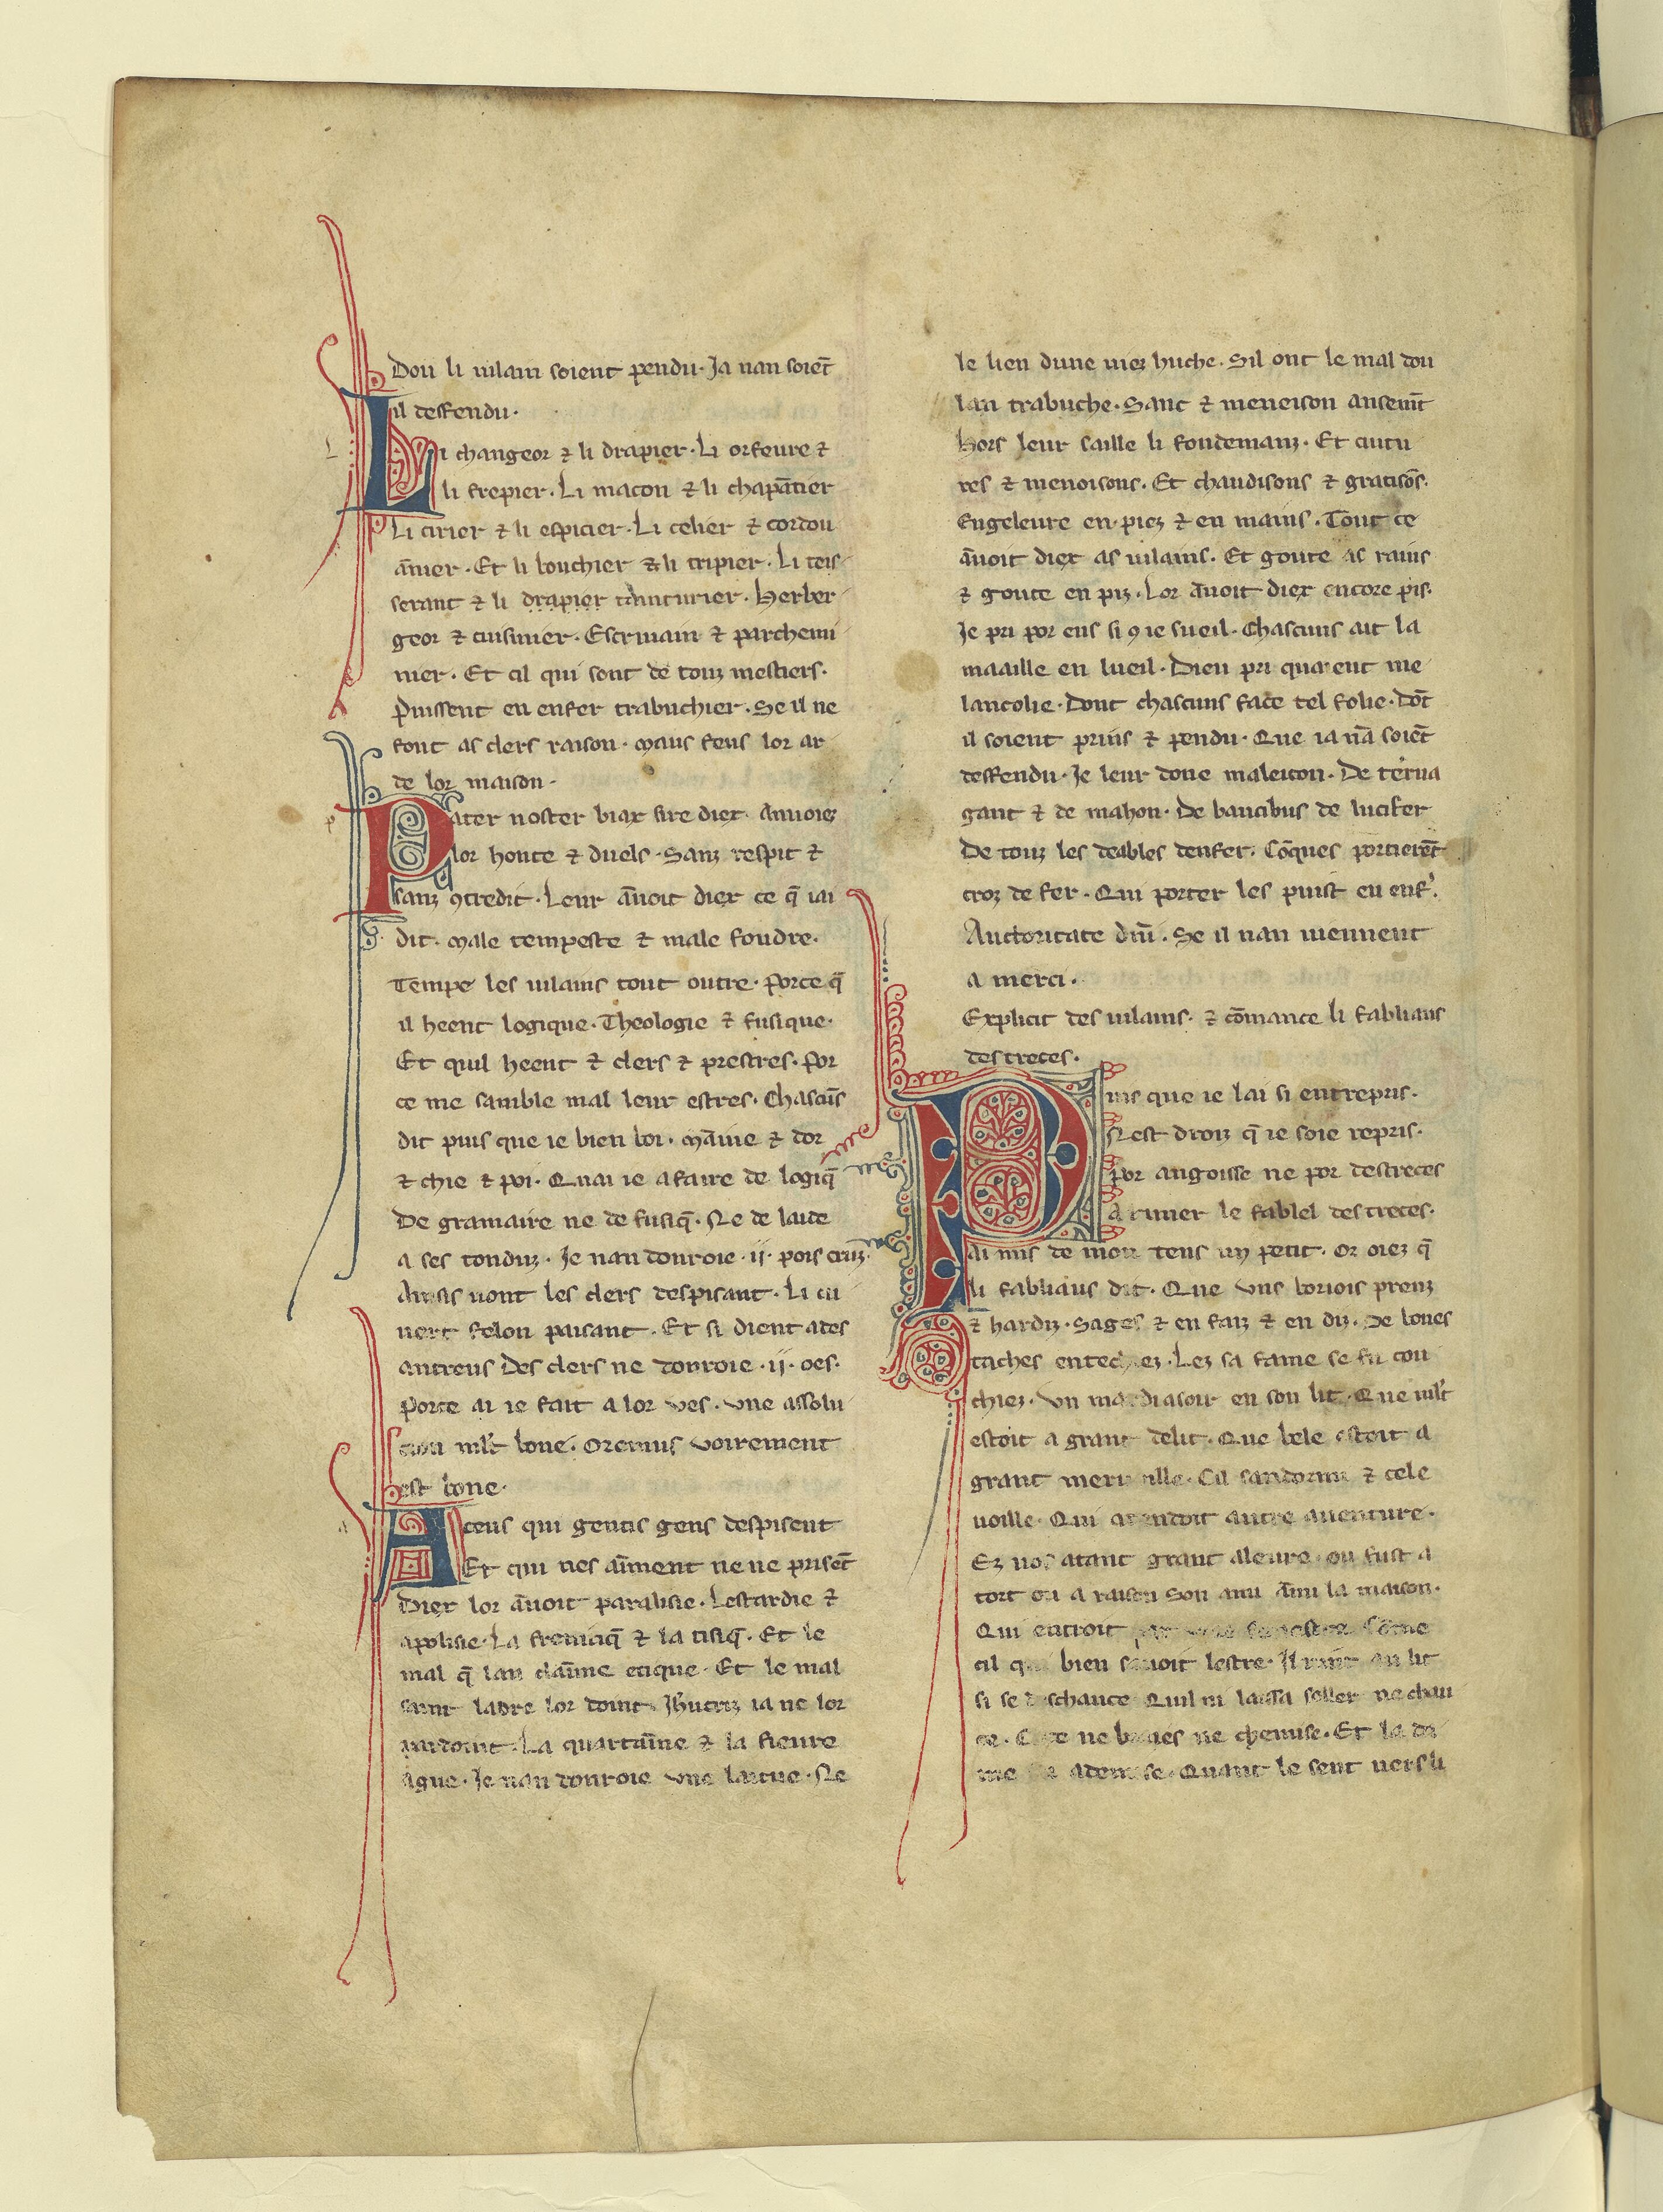 Dou li uilain soient pendu. Ja nan soiēt
il desfendu.
Li changeor ⁊ li drapier. Li orfeure ⁊
li frepier. Li macon ⁊ li chapātier
Li cirier ⁊ li espicier. Li celier ⁊ cordou
ānier. Et li bouchier ⁊ li tripier. Li teis
serant ⁊ li drapier tainturier. Herber
geor ⁊ cuisinier. Escriuain ⁊ parchemi
nier. Et cil qui sont de touz mestiers.
Puissent en enfer trabuchier. Se il ne
font as clers raison. Maus feus lor ar
de lor maison.
Pater noster biax sire diex. Anuoiez
lor honte ⁊ duels. Sanz respit ⁊
sanz ꝯtredit. Leur āuoit diex ce q̄ iai
dit. Male tempeste ⁊ male foudre.
Tempe les uilains tout outre. Porce q̄
il heent logique. Theologie ⁊ fusique.
Et quil heent ⁊ clers ⁊ prestres. Por
ce me samble mal leur estres. Chascūs
dit puis que ie bien boi. Māiue ⁊ dor
⁊ chie ⁊ poi. Quai ie afaire de logiq̄
De gramaire ne de fusiq̄. Ne de laide
a ses tonduz. Je nan donroie .ii. pois cruz.
Ainsis uont les clers despisant. Li cu
uert felon paisant. Et si dient ates
antreus Des clers ne donroie .ii. oes.
Porce ai ie fait a lor ves. vne assolu
cion mlt bone. Oremus voirement
est bone.
A ceus qui gentis gens despisent
Et qui nes aīment ne ne prisēt
Diex lor āuoit paralisie. Lestardie ⁊
apolisie. La freniciq̄ ⁊ la tisiq̄. Et le
mal q̄ lan claīme etique. Et le mal
saint ladre lor doint. Ihucriz ia ne lor
pardoint. La quartaīne ⁊ la fieure
ague. Je nan donroie vne laitue. Ne
le lien dune uiez huche. Sil ont le mal dou
lan trabuche. Sanc ⁊ meneison ansemt
Hors leur saille li fondemanz. Et cuitu
res ⁊ menoisons. Et chaudisons ⁊ gratisōs.
Engeleure en piez ⁊ en mains. Tout ce
āuoit diex as uilains. Et goute as rains
⁊ goute en piz. Lor āuoit diex encore pis.
Je pri por eus si ꝯ ie sueil. Chascuns ait la
maaille en lueil. Dieu pri quarent me
lancolie. Dont chascuns face tel folie. Dōt
il soient prins ⁊ pendu. Que ia nā soiēt
desfendu. Je leur done maleicon. De terua
gant ⁊ de mahon. De baucibus de lucifer
De touz les deables denfer. Cōques portierēt
croz de fer. Qui porter les puist en enf'.
Auctoritate dnī. Se il nan uiennent
a merci.
Explicit des uilains. ⁊ cōmance li fabliaus
des treces.
Puis que ie lai si entrepris.
Nest droiz q̄ ie soie repris.
Por angoisse ne por destreces
A rimer le fablel des treces.
Ai mis de mon tens un petit. Or oiez q̄
li fabliaus dit. Que vns boriois preuz
⁊ hardiz. Sages ⁊ en faiz ⁊ en diz. De bones
taches entechiez. Lez sa fame se fu cou
chiez. Un mardi asoir en son lit. Que mlt
estoit a grant delit. Que bele estoit a
grant meruoille. Cil sandormi ⁊ cele
uoille. Qui atendoit autre auenture.
Ez uos atant grant aleure. ou fust a
tort ou a raison Son ami āmi la maison.
Qui entroit par Cōme
cil qui bien sauoit lestre. Il uint au lit
si se deschauce Quil ni laissa soller ne chau
ce. Cote ne braies ne chemise. Et la da
me Quant le sent uers li